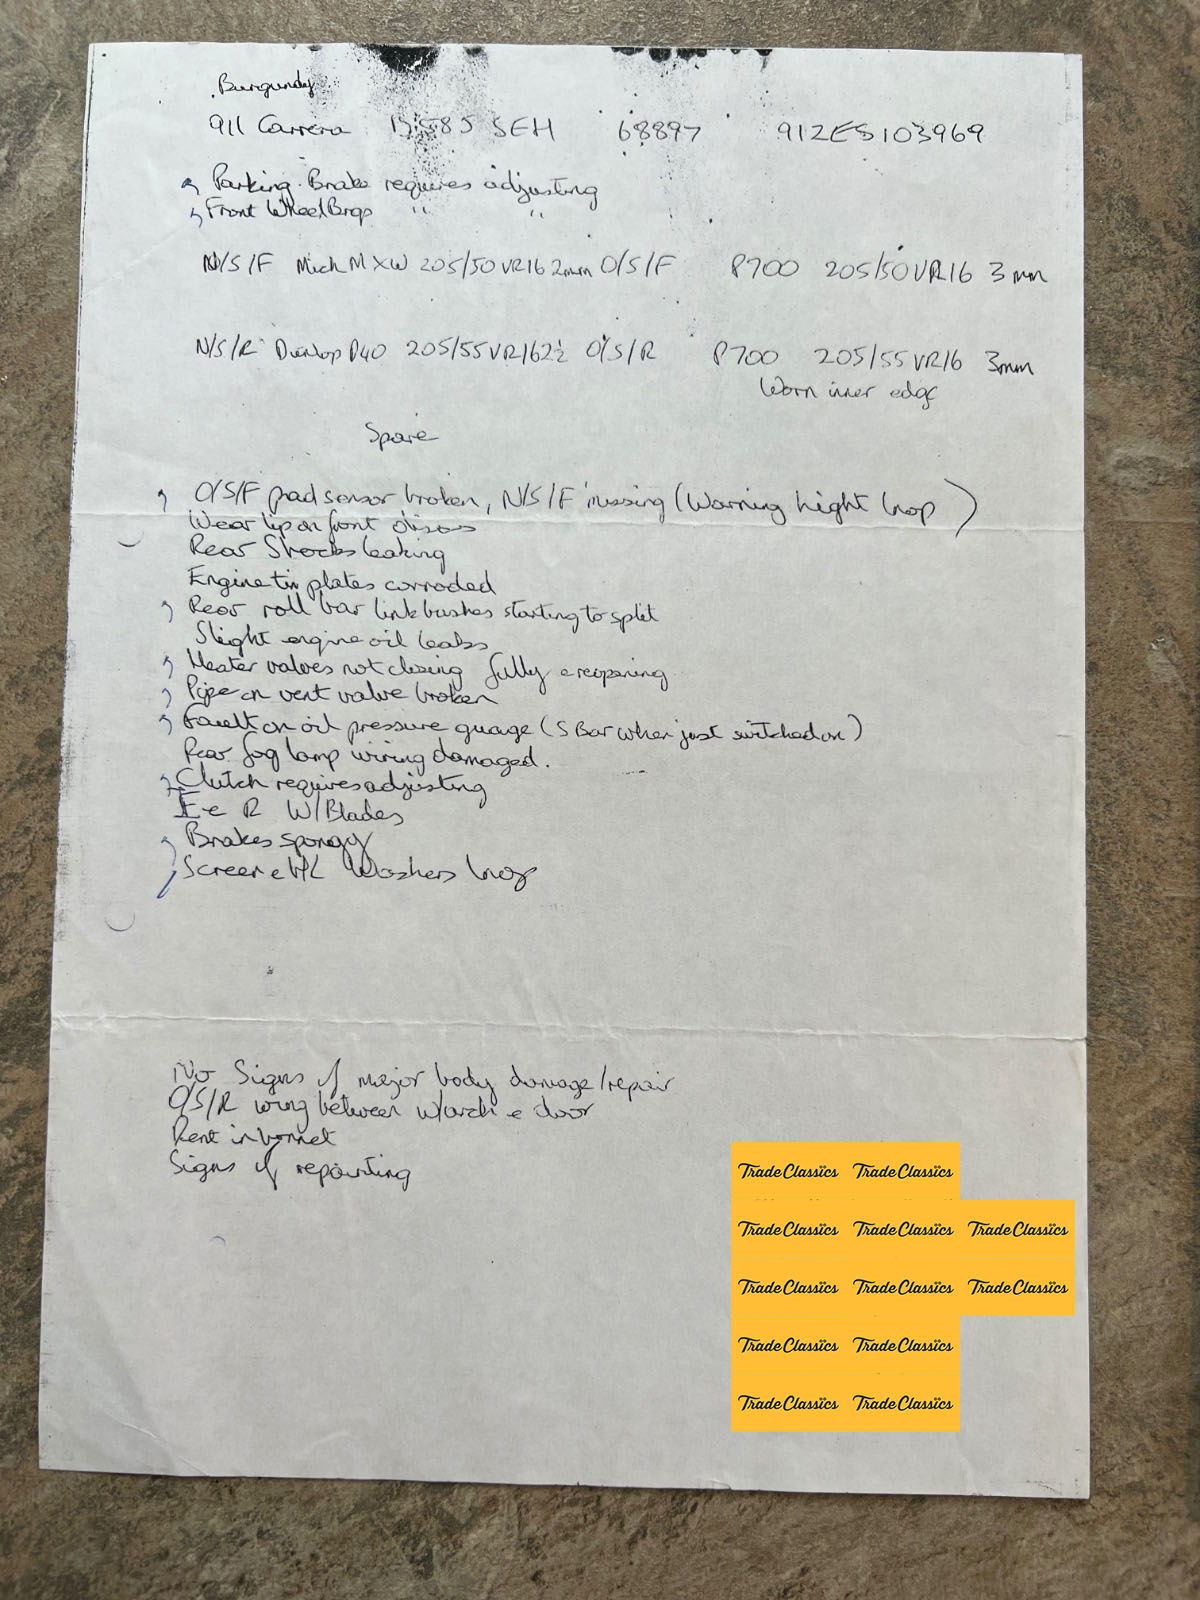 Burgundy
911 Carrera 585 SEH 68897 912ES103969
Parking Brake requires adjusting
Front Wheel Brgs " "
N/S/F Mich MXW 205/50 VR16 2mm O/S/F P700 205/50 VR16 3mm
N/S/R Dunlop D40 205/55 VR16 2½ O/S/R P700 205/55 VR16 3mm
Worn inner edge
Spare
O/S/F pad sensor broken, N/S/F missing (Warning Light Inop)
Wear lip on front discs
Rear Shocks leaking
Engine tin plates corroded
Rear roll bar link bushes starting to split
Slight engine oil leaks
Heater valves not closing fully e reopening
Pipe on vent valve broken
Fault on oil pressure guage (5 Bar when just switched on)
Rear fog lamp wiring damaged.
Clutch requires adjusting
F e R W/Blades
Brakes spongy
Screen e H/L Washers Inop
No Signs of major body damage/repair
O/S/R wing between w/arch e door
Dent in bonnet
Signs of repainting
Trade Classics Trade Classics
Trade Classics Trade Classics Trade Classics
Trade Classics Trade Classics Trade Classics
Trade Classics Trade Classics
Trade Classics Trade Classics